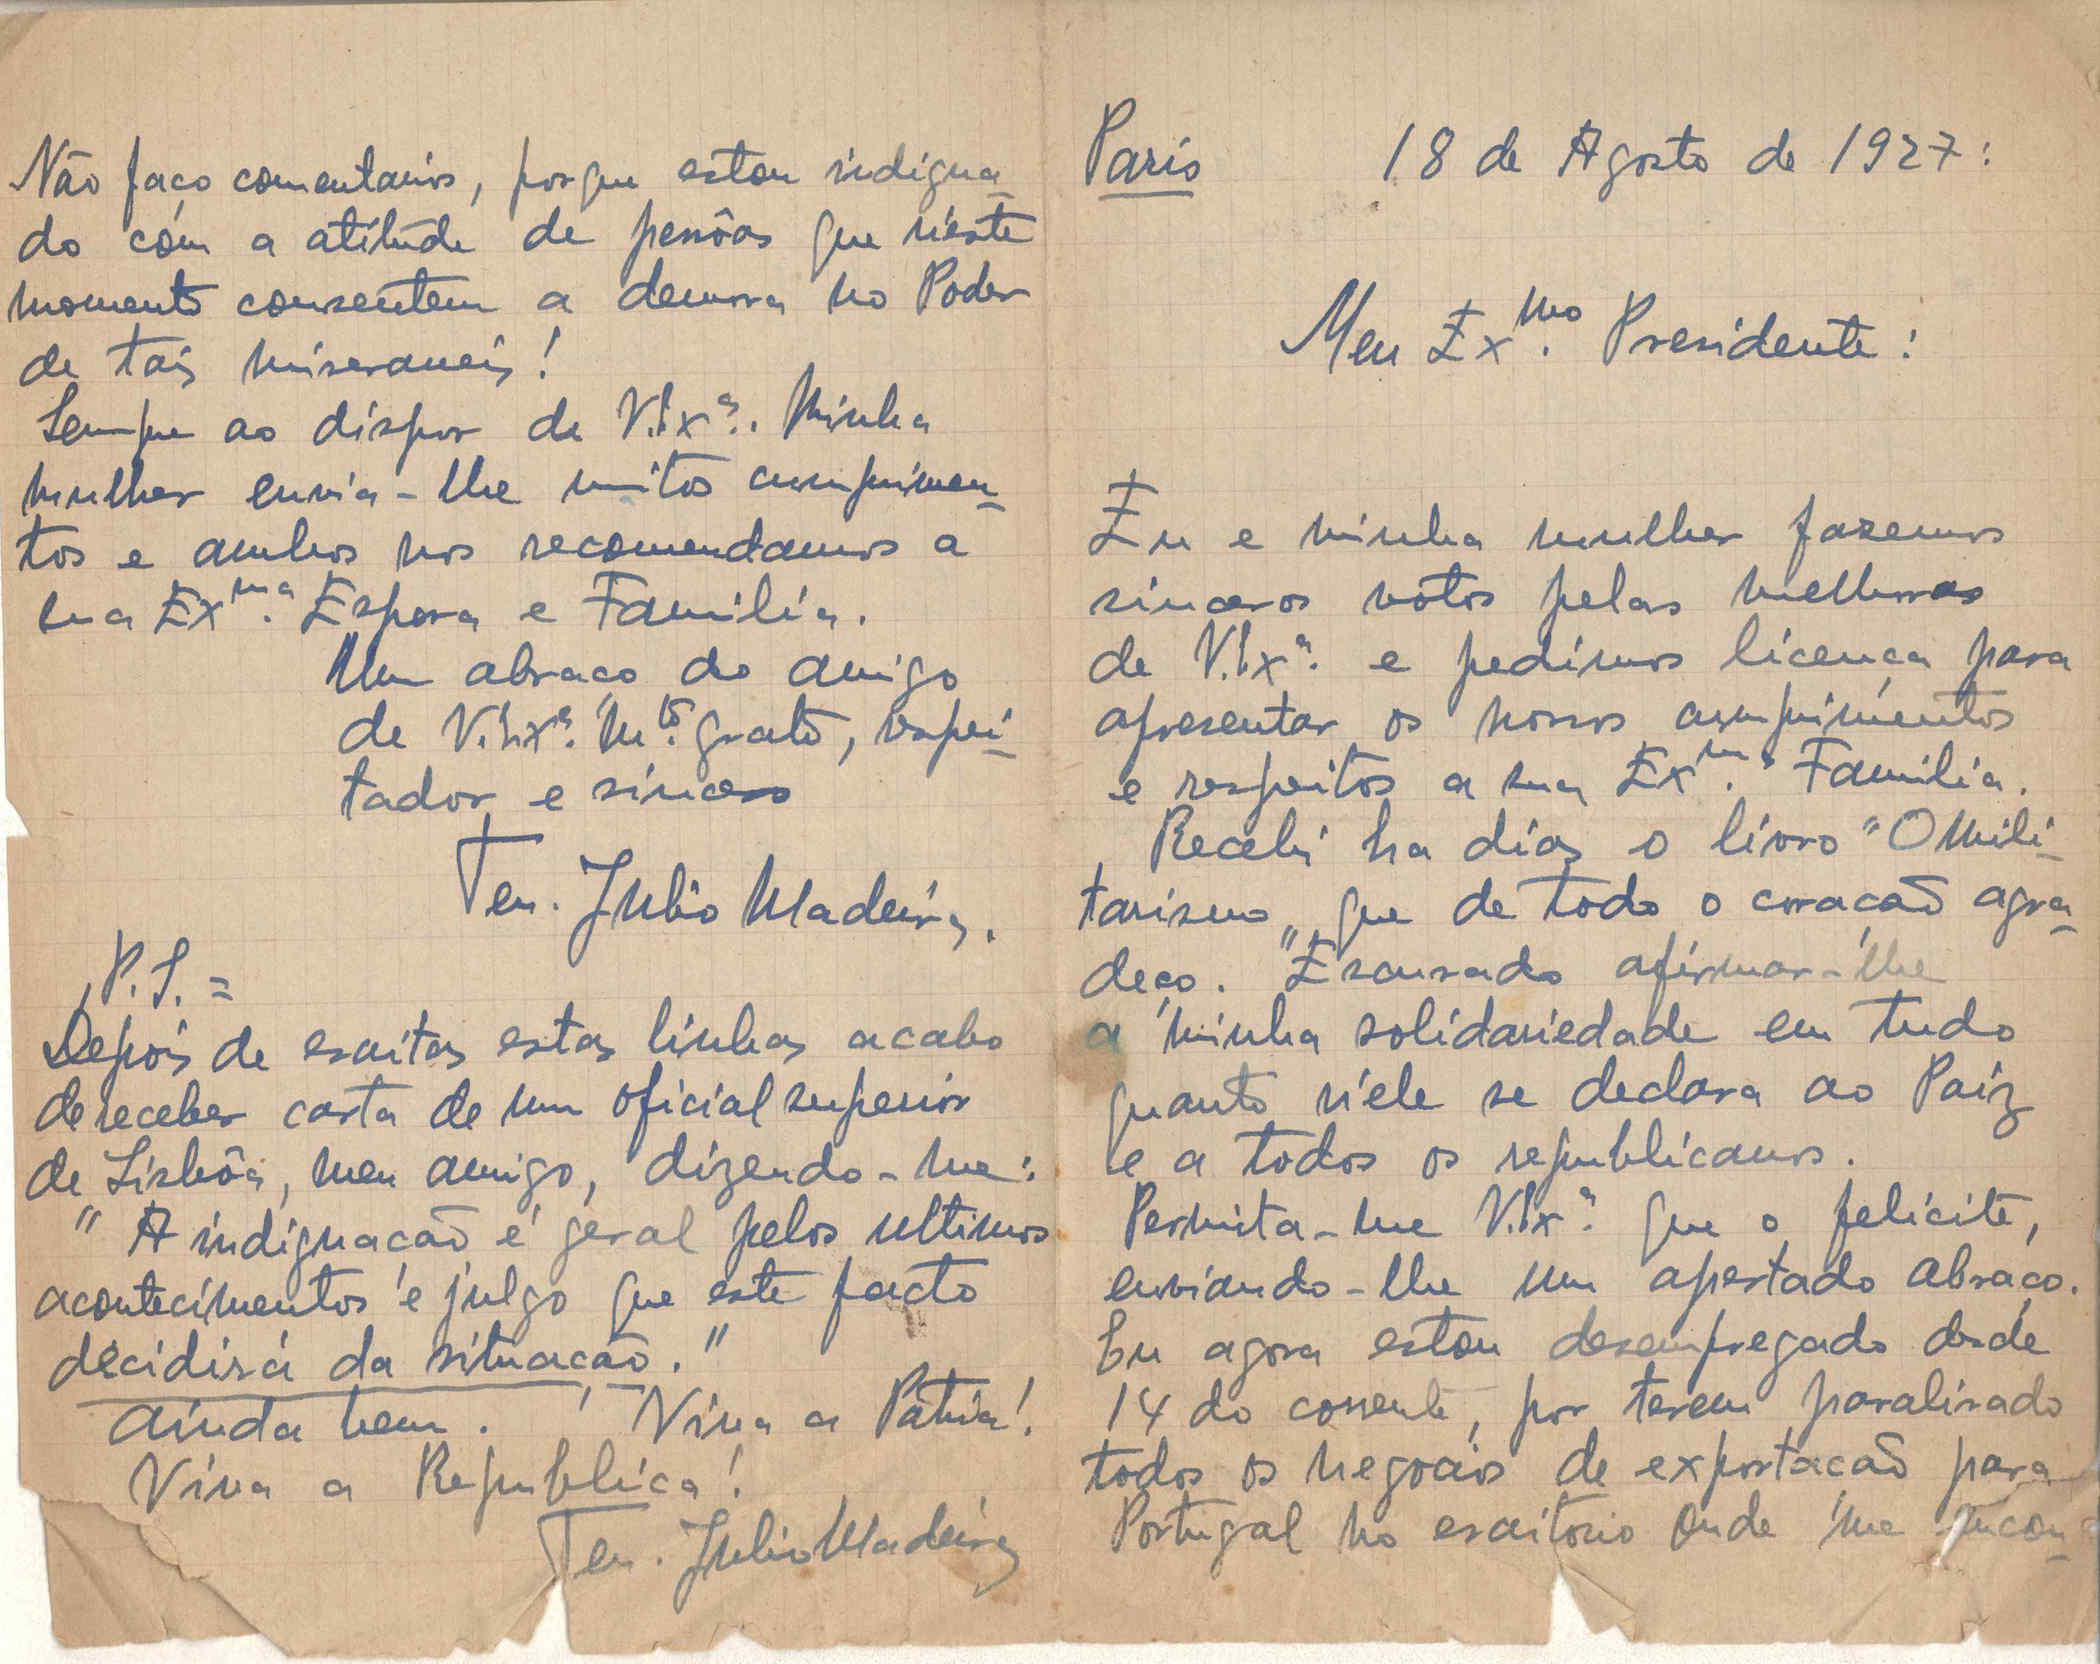 Paris 18 de Agosto de 1927:
Meu Ex.mo Presidente:
Eu e minha mulher fazemos
sinceros votos pelas melhoras
de V. Exª. e pedimos licença para
apresentar os nossos cumprimentos
e respeitos a sua Exm.ª Familia.
Recebi ha dias o livro "O Mili-
tarismo" que de todo o coração agra-
deço. Escusado afirmar-lhe
a minha solidariedade em tudo
quanto n'ele se declara ao Paiz
e a todos os republicanos.
Permita-me V. Exª. que o felicite,
enviando-lhe um apertado abraço.
Eu agora estou desempregado desde
14 do corrente, por terem paralisado
todos os negocios de exportação para
Portugal no escritorio onde me encon-
Não faço comentarios, porque estou indigna-
do com a atitude de pessôas que n'este
momento consentem a demora no Poder
de tais miseraveis!
Sempre ao dispor de V. Exª. Minha
mulher envia-lhe muitos cumprimen-
tos e ambos nos recomendamos a
sua Ex.ma Espoza e Familia.
Um abraço do amigo
de V. Exª. M.to grato, respei-
tador e sincero
Ten. Julio Madeira.
P.S. =
Depois de escritas estas linhas acabo
de receber carta de um oficial superior
de Lisbôa, meu amigo, dizendo-me:
"A indignação é geral pelos ultimos
acontecimentos e julgo que este facto
decidirá da situação."
Ainda bem. Viva a Pátria!
Viva a Republica!
Ten. Julio Madeira